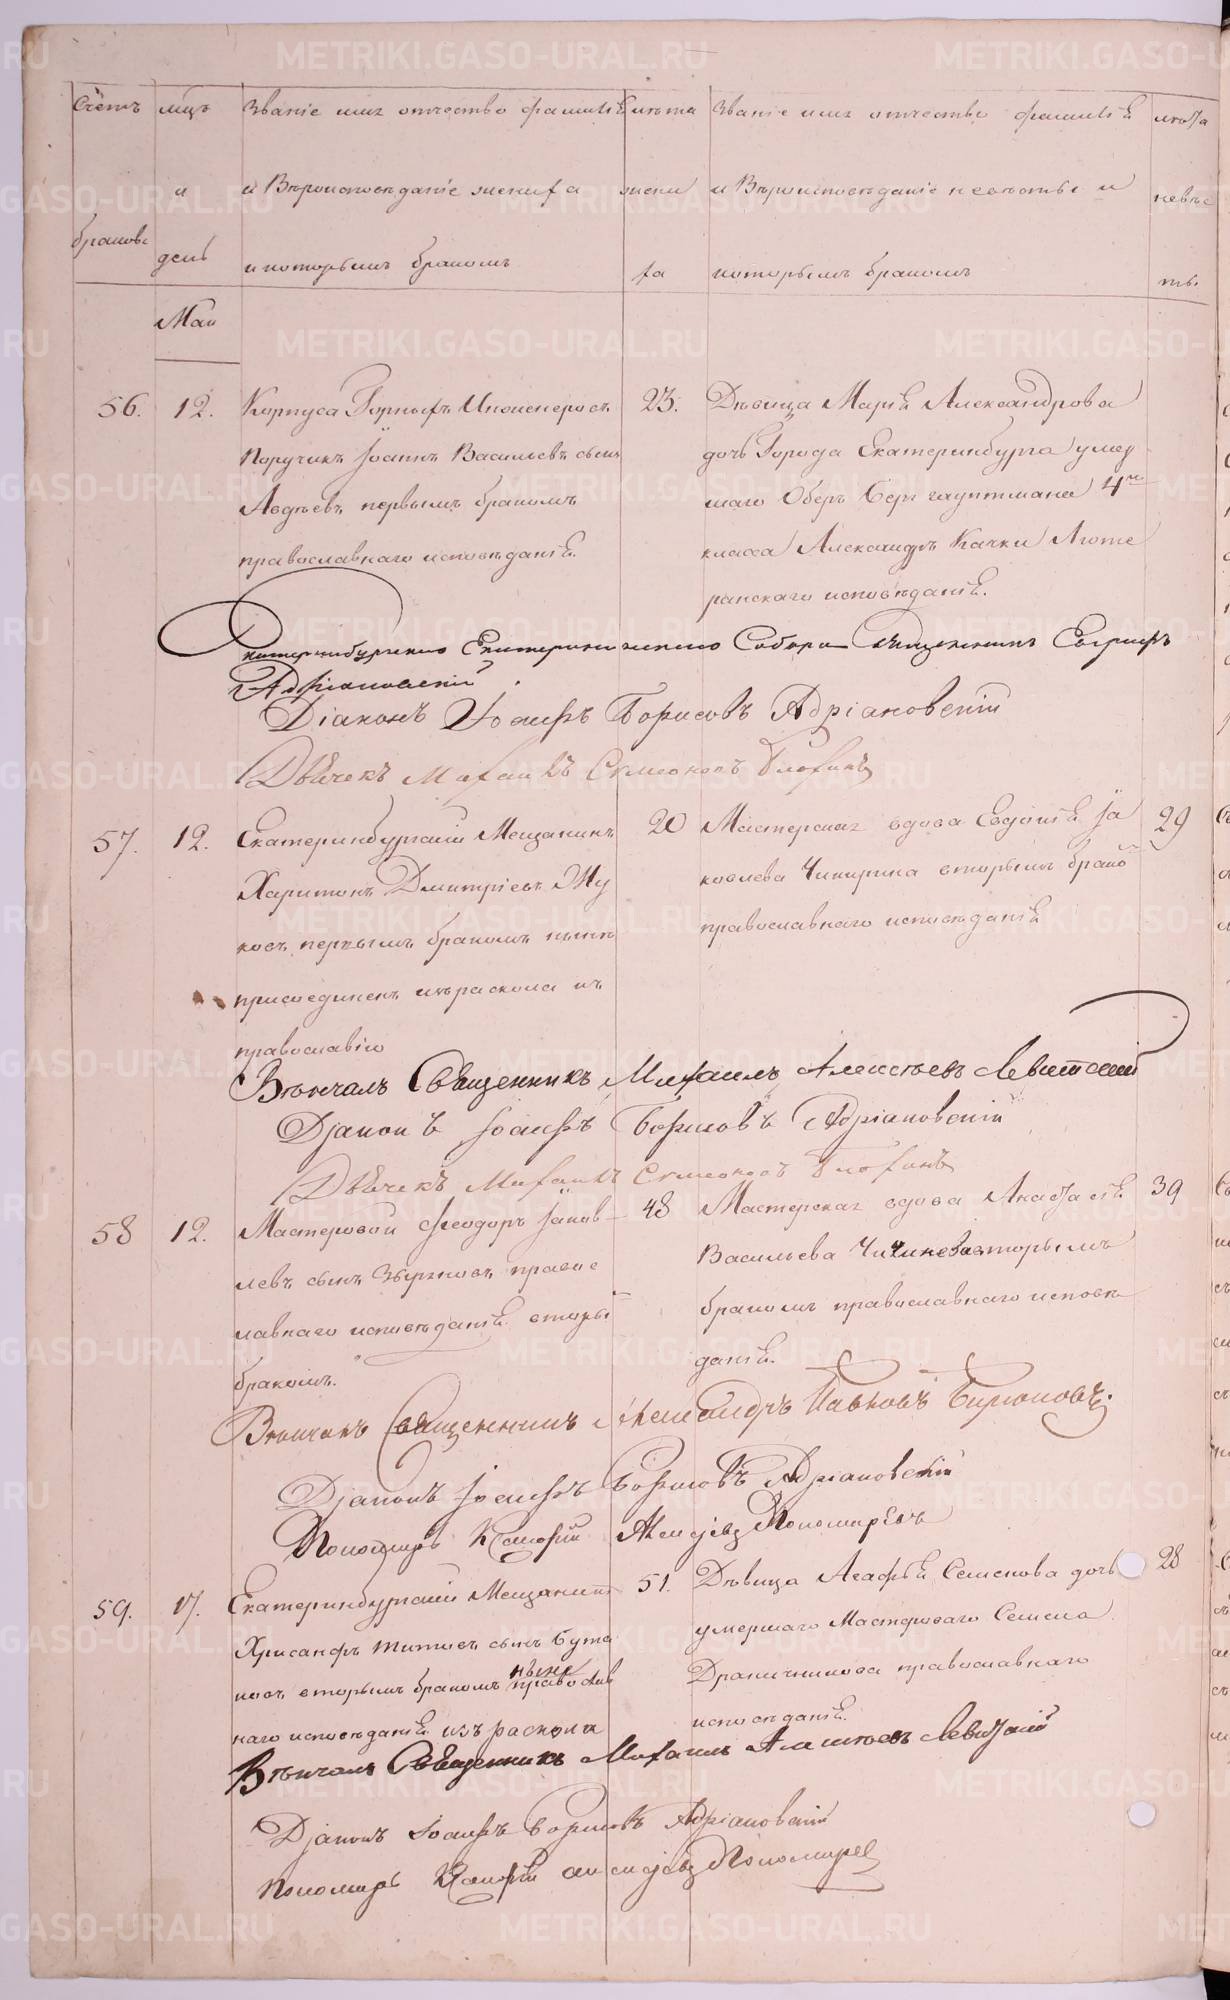 Счетъ мцъ Званіе имя отчество фамилія лѣта Званіе имя отчество фамилія лѣта
и и Вѣроисповѣданіе жениха жени и Вѣроисповѣданіе невѣсты и невѣс
браковъ день и которымъ бракомъ ха которымъ бракомъ ты.
Май
56. 12. Корпуса Горныхъ Инженеровъ 23. Дѣвица Марія Александрова
Поручикъ Іоаннъ Васильевъ сынъ дочь Города Екатеринбурга умер
Авдѣевъ первымъ бракомъ шаго Оберъ Берггауптмана 4го
православнаго исповѣданія. класса Александръ Качки Люте
ранскаго исповѣданія.
Екатеринбургскаго Екатерининскаго Собора Священникъ
Адріановскій.
Діаконъ Іосифъ Борисовъ Адріановскій
Дьячекъ Михаилъ Симеоновъ
57. 12. Екатеринбургскій Мещанинъ 20 Мастерская вдова Евдокія Іа 29
Харитонъ Дмитріевъ Жу ковлева Чипурина вторымъ брако
ковъ первымъ бракомъ нынѣ православнаго исповѣданія
присоединенъ изъ раскола къ
православію
Вѣнчалъ Священникъ Михаилъ Алексѣевъ Левитскій
Діаконъ Іосифъ Борисовъ Адріановскій
Дьячекъ Михаилъ Симеоновъ
58 12. Мастеровой Ѳеодоръ Іаков 48 Мастерская вдова Анастасія 39
левъ сынъ правос Васильева вторымъ
лавнаго исповѣданія вторы бракомъ православнаго исповѣ
бракомъ. данія.
Вѣнчалъ Священникъ Александръ Павловъ Бирюковъ.
Діаконъ Іосифъ Борисовъ Адріановскій
Пономарь Алексѣевъ Пономаревъ
59. 17. Екатеринбургскій Мещанинъ 51. Дѣвица Агафія Семенова дочь 28
Хрисанфъ Титовъ сынъ Бута умершаго Мастероваго Семена
ковъ вторымъ бракомъ нынѣ православ Драничникова православнаго
наго исповѣданія изъ раскола исповѣданія.
Вѣнчалъ Священникъ Михаилъ Алексѣевъ Левитскій
Діаконъ Іосифъ Борисовъ Адріановскій
Пономарь Алексѣевъ Пономаревъ
METRIKI.GASO-URAL.RU